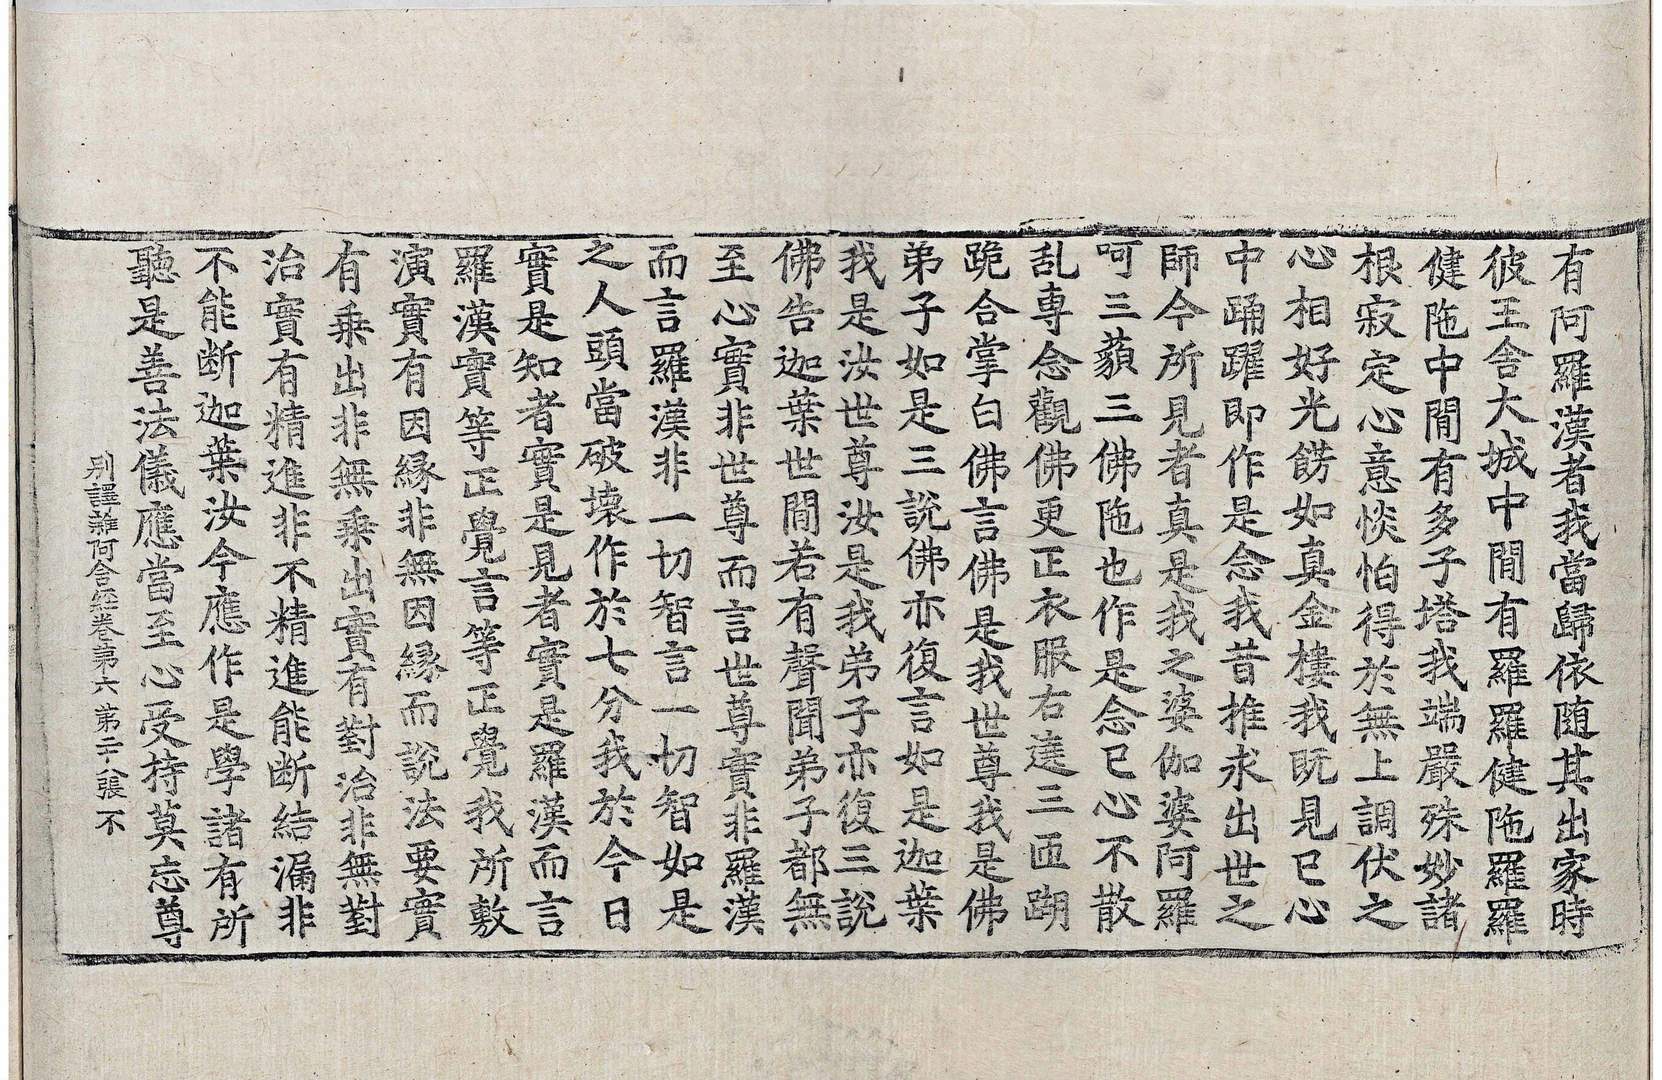 有阿羅漢者我當歸依随其出家時
彼王舎大城中閒有羅羅健陁羅羅
健陁中閒有多子塔我端嚴殊妙諸
根寂定心意惔怕得於無上調伏之
心相好光餝如真金樓我旣見已心
中踊躍即作是念我昔推求出世之
師今所見者真是我之婆伽婆阿羅
呵三藐三佛陁也作是念已心不散
乱専念觀佛更正衣服右遶三匝䠒
跪合掌白佛言佛是我世尊我是佛
弟子如是三說佛亦復言如是迦葉
我是汝世尊汝是我弟子亦復三說
佛告迦葉世閒若有聲聞弟子都無
至心實非世尊而言世尊實非羅漢
而言羅漢非一切智言一切智如是
之人頭當破壞作於七分我於今日
實是知者實是見者實是羅漢而言
羅漢實等正覺言等正覺我所敷
演實有因緣非無因緣而說法要實
有乗出非無乗出實有對治非無對
治實有精進非不精進能断結漏非
不能断迦葉汝今應作是學諸有所
聽是善法儀應當至心受持莫忘尊
别譯雜阿含經卷第六 第二十八張 不